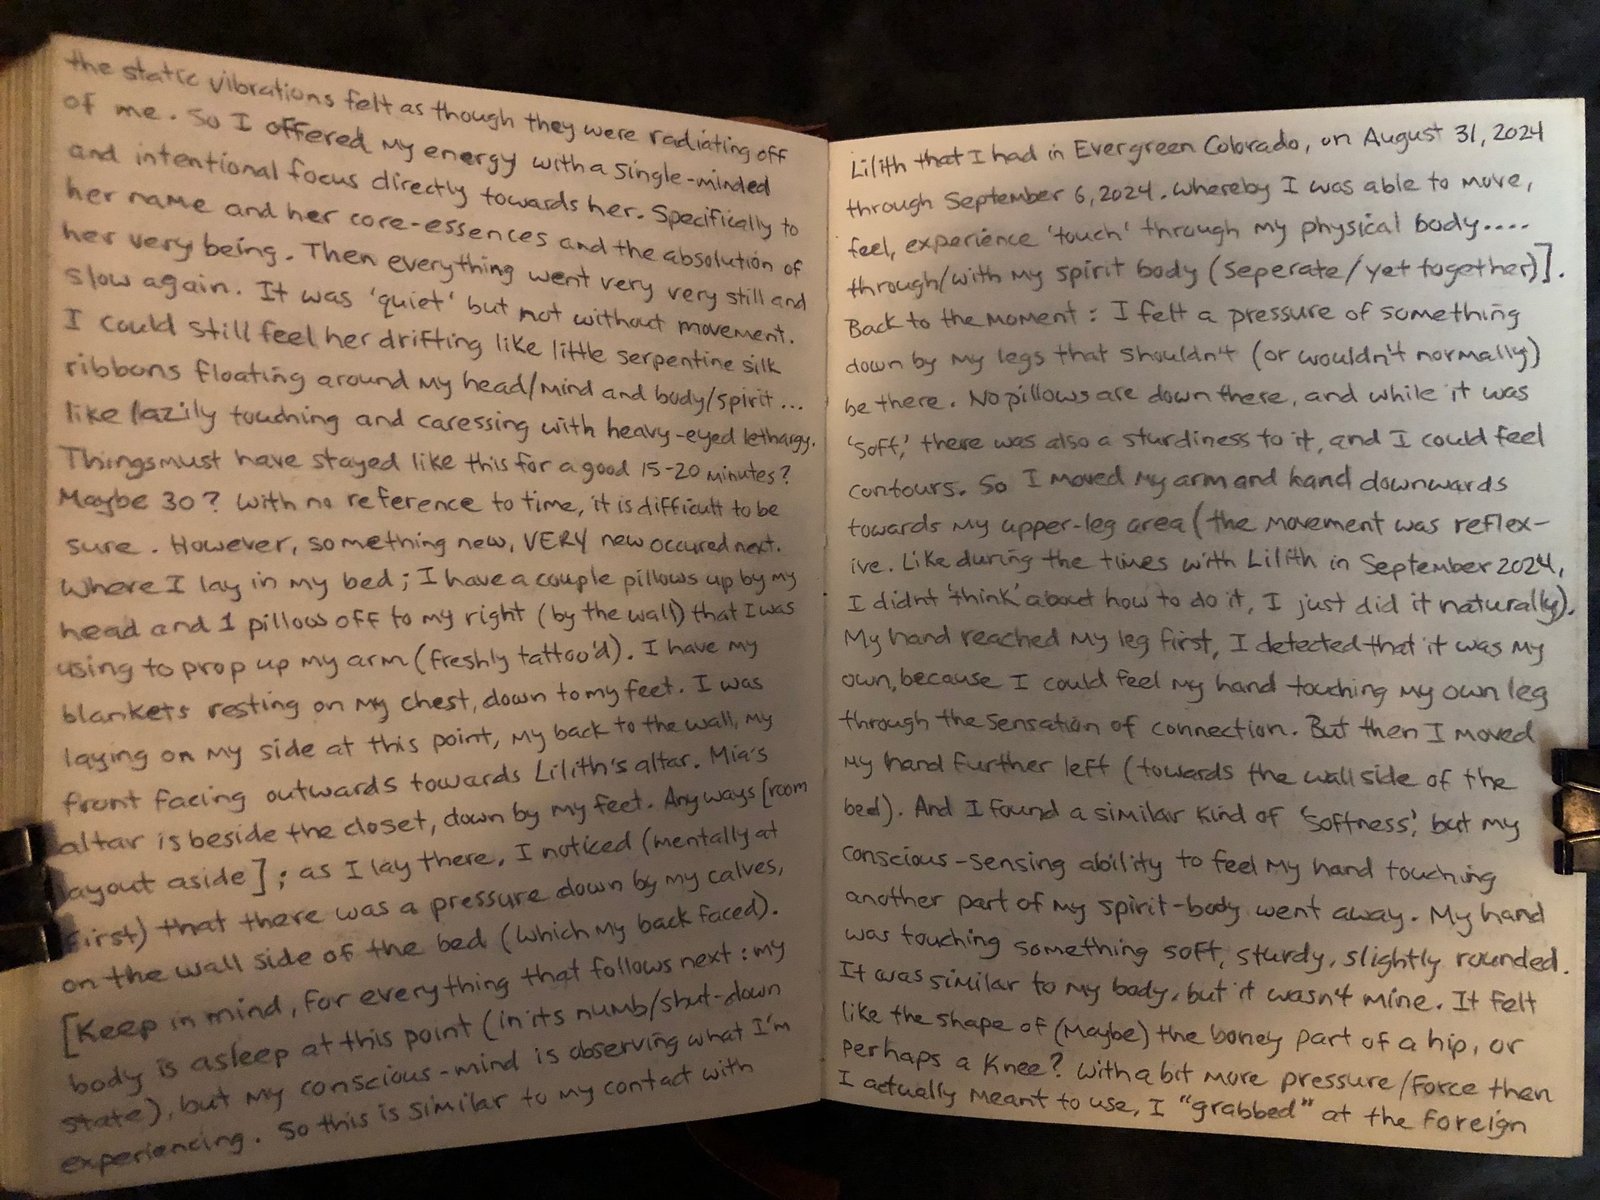 the static vibrations felt as though they were radiating off
of me. So I offered my energy with a single-minded
and intentional focus directly towards her. Specifically to
her name and her core-essences and the absolution of
her very being. Then everything went very very still and
slow again. It was 'quiet' but not without movement.
I could still feel her drifting like little serpentine silk
ribbons floating around my head/mind and body/spirit...
like lazily touching and caressing with heavy-eyed lethargy.
Things must have stayed like this for a good 15-20 minutes?
Maybe 30? With no reference to time, it is difficult to be
sure. However, something new, VERY new occured next.
Where I lay in my bed; I have a couple pillows up by my
head and 1 pillow off to my right (by the wall) that I was
using to prop up my arm (freshly tattoo'd). I have my
blankets resting on my chest, down to my feet. I was
laying on my side at this point, my back to the wall, my
front facing outwards towards Lilith's altar. Mia's
altar is beside the closet, down by my feet. Anyways [room
layout aside]; as I lay there, I noticed (mentally at
first) that there was a pressure down by my calves,
on the wall side of the bed (which my back faced).
[Keep in mind, for everything that follows next: my
body is asleep at this point (in its numb/shut-down
state), but my conscious-mind is observing what I'm
experiencing. So this is similar to my contact with
Lilith that I had in Evergreen Colorado, on August 31, 2024
through September 6, 2024. Whereby I was able to move,
feel, experience 'touch' through my physical body....
through/with my spirit body (seperate/yet together)].
Back to the moment: I felt a pressure of something
down by my legs that shouldn't (or wouldn't normally)
be there. No pillows are down there, and while it was
'soft,' there was also a sturdiness to it, and I could feel
contours. So I moved my arm and hand downwards
towards my upper-leg area (the movement was reflex-
ive. Like during the times with Lilith in September 2024,
I didnt 'think' about how to do it, I just did it naturally).
My hand reached my leg first, I detected that it was my
own, because I could feel my hand touching my own leg
through the sensation of connection. But then I moved
my hand further left (towards the wall side of the
bed). And I found a similar kind of 'softness', but my
conscious-sensing ability to feel my hand touching
another part of my spirit-body went away. My hand
was touching something soft, sturdy, slightly rounded.
It was similar to my body, but it wasn't mine. It felt
like the shape of (maybe) the boney part of a hip, or
perhaps a knee? With a bit more pressure/force then
I actually meant to use, I "grabbed" at the foreign